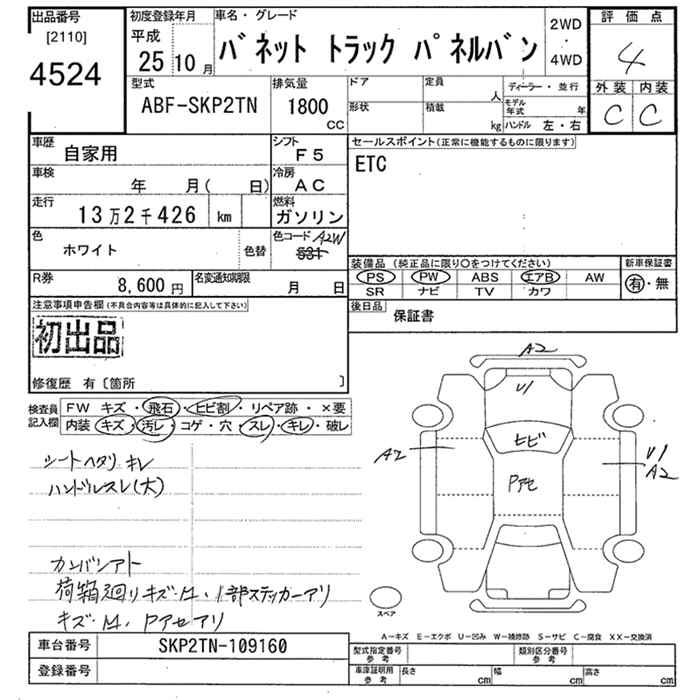 出品番号
[2110]
4524
初度登録年月
平成
25 10月
車名・グレード
バネット トラック パネルバン
2WD
・
4WD
評価点
4
外装 内装
C C
型式
ABF-SKP2TN
排気量
1800
CC
ドア
形状
定員
人
積載
kg
ディーラー・並行
モデル年式 年
ハンドル 左・右
車歴
自家用
シフト
F5
車検
年 月( 日)
冷房
AC
走行
13万2千426 km
燃料
ガソリン
色
ホワイト
色替
色コード A2W
531
R券
8,600円
名変通知期限
月 日
セールスポイント(正常に機能するものに限ります)
ETC
装備品 (純正品に限り○をつけてください)
PS PW ABS エアB AW
SR ナビ TV カワ
新車保証書
有・無
後日品
保証書
注意事項申告欄(不具合内容等は具体的に記入して下さい)
初出品
修復歴 有〔箇所 〕
検査員記入欄
FW キズ・飛石・ヒビ割・リペア跡・×要
内装 キズ・汚レ・コゲ・穴・スレ・キレ・破レ
シートヘタリ キレ
ハンドルスレ(大)
カンバンアト
荷箱廻りキズ・M・1部ステッカーアリ
キズ・M・Pアセアリ
A2
U1
ヒビ
A2
Pアセ
U1
A2
スペア
A-キズ E-エクボ U-凹み W-補修跡 S-サビ C-腐食 XX-交換済
車台番号
SKP2TN-109160
登録番号
型式指定番号
参考
類別区分番号
参考
車庫証明用
参考
長さ cm
幅 cm
高さ cm